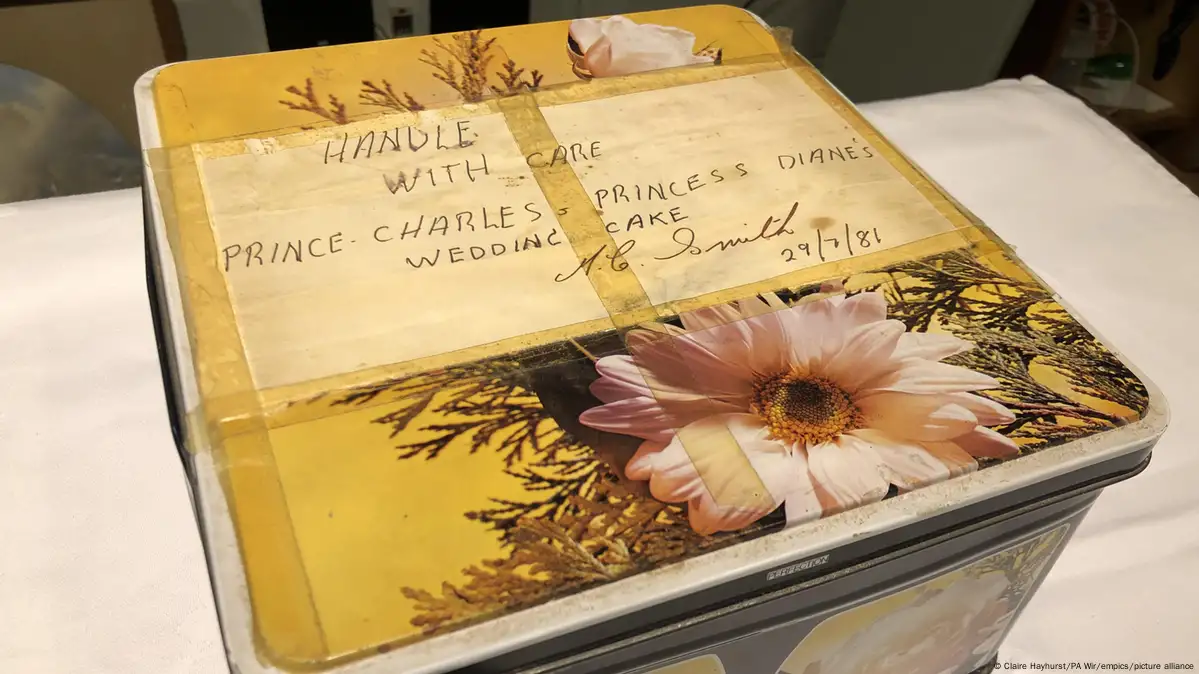 HANDLE
WITH CARE
PRINCE. CHARLES & PRINCESS DIANE'S
WEDDING CAKE
M.C. Smith
29/7/81
PERFECTION
© Claire Hayhurst/PA Wir/empics/picture alliance